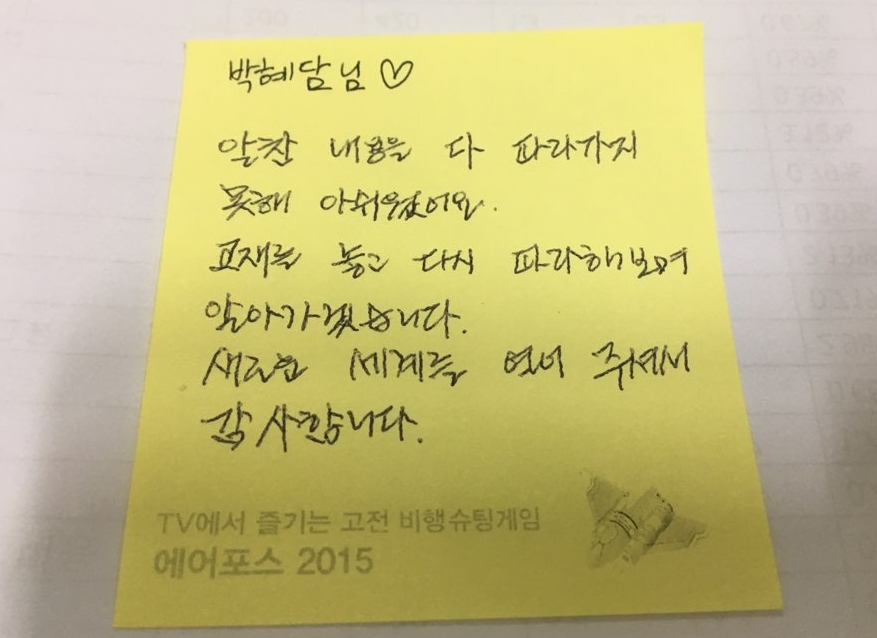 박혜담님 ♡
알찬 내용을 다 따라가지
못해 아쉬웠어요.
교재를 놓고 다시 따라해보며
알아가겠습니다.
새로운 세계를 열어 주셔서
감사합니다.
TV에서 즐기는 고전 비행슈팅게임
에어포스 2015